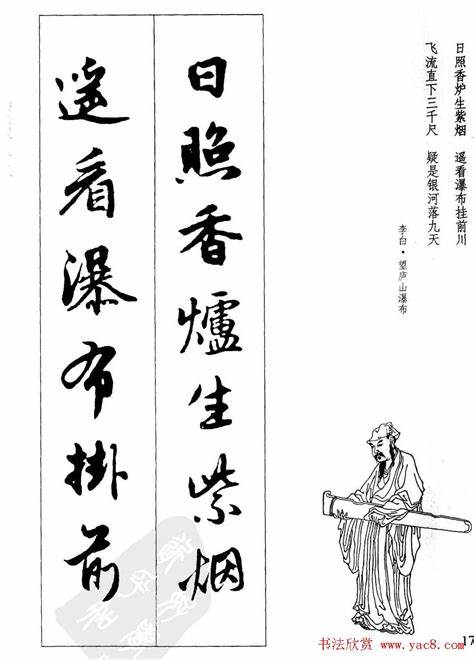 日照香炉生紫烟 遥看瀑布挂前川
飞流直下三千尺 疑是银河落九天
李白·望庐山瀑布
日照香爐生紫烟
遥看瀑布掛前
17
书法欣赏 www.yac8.com